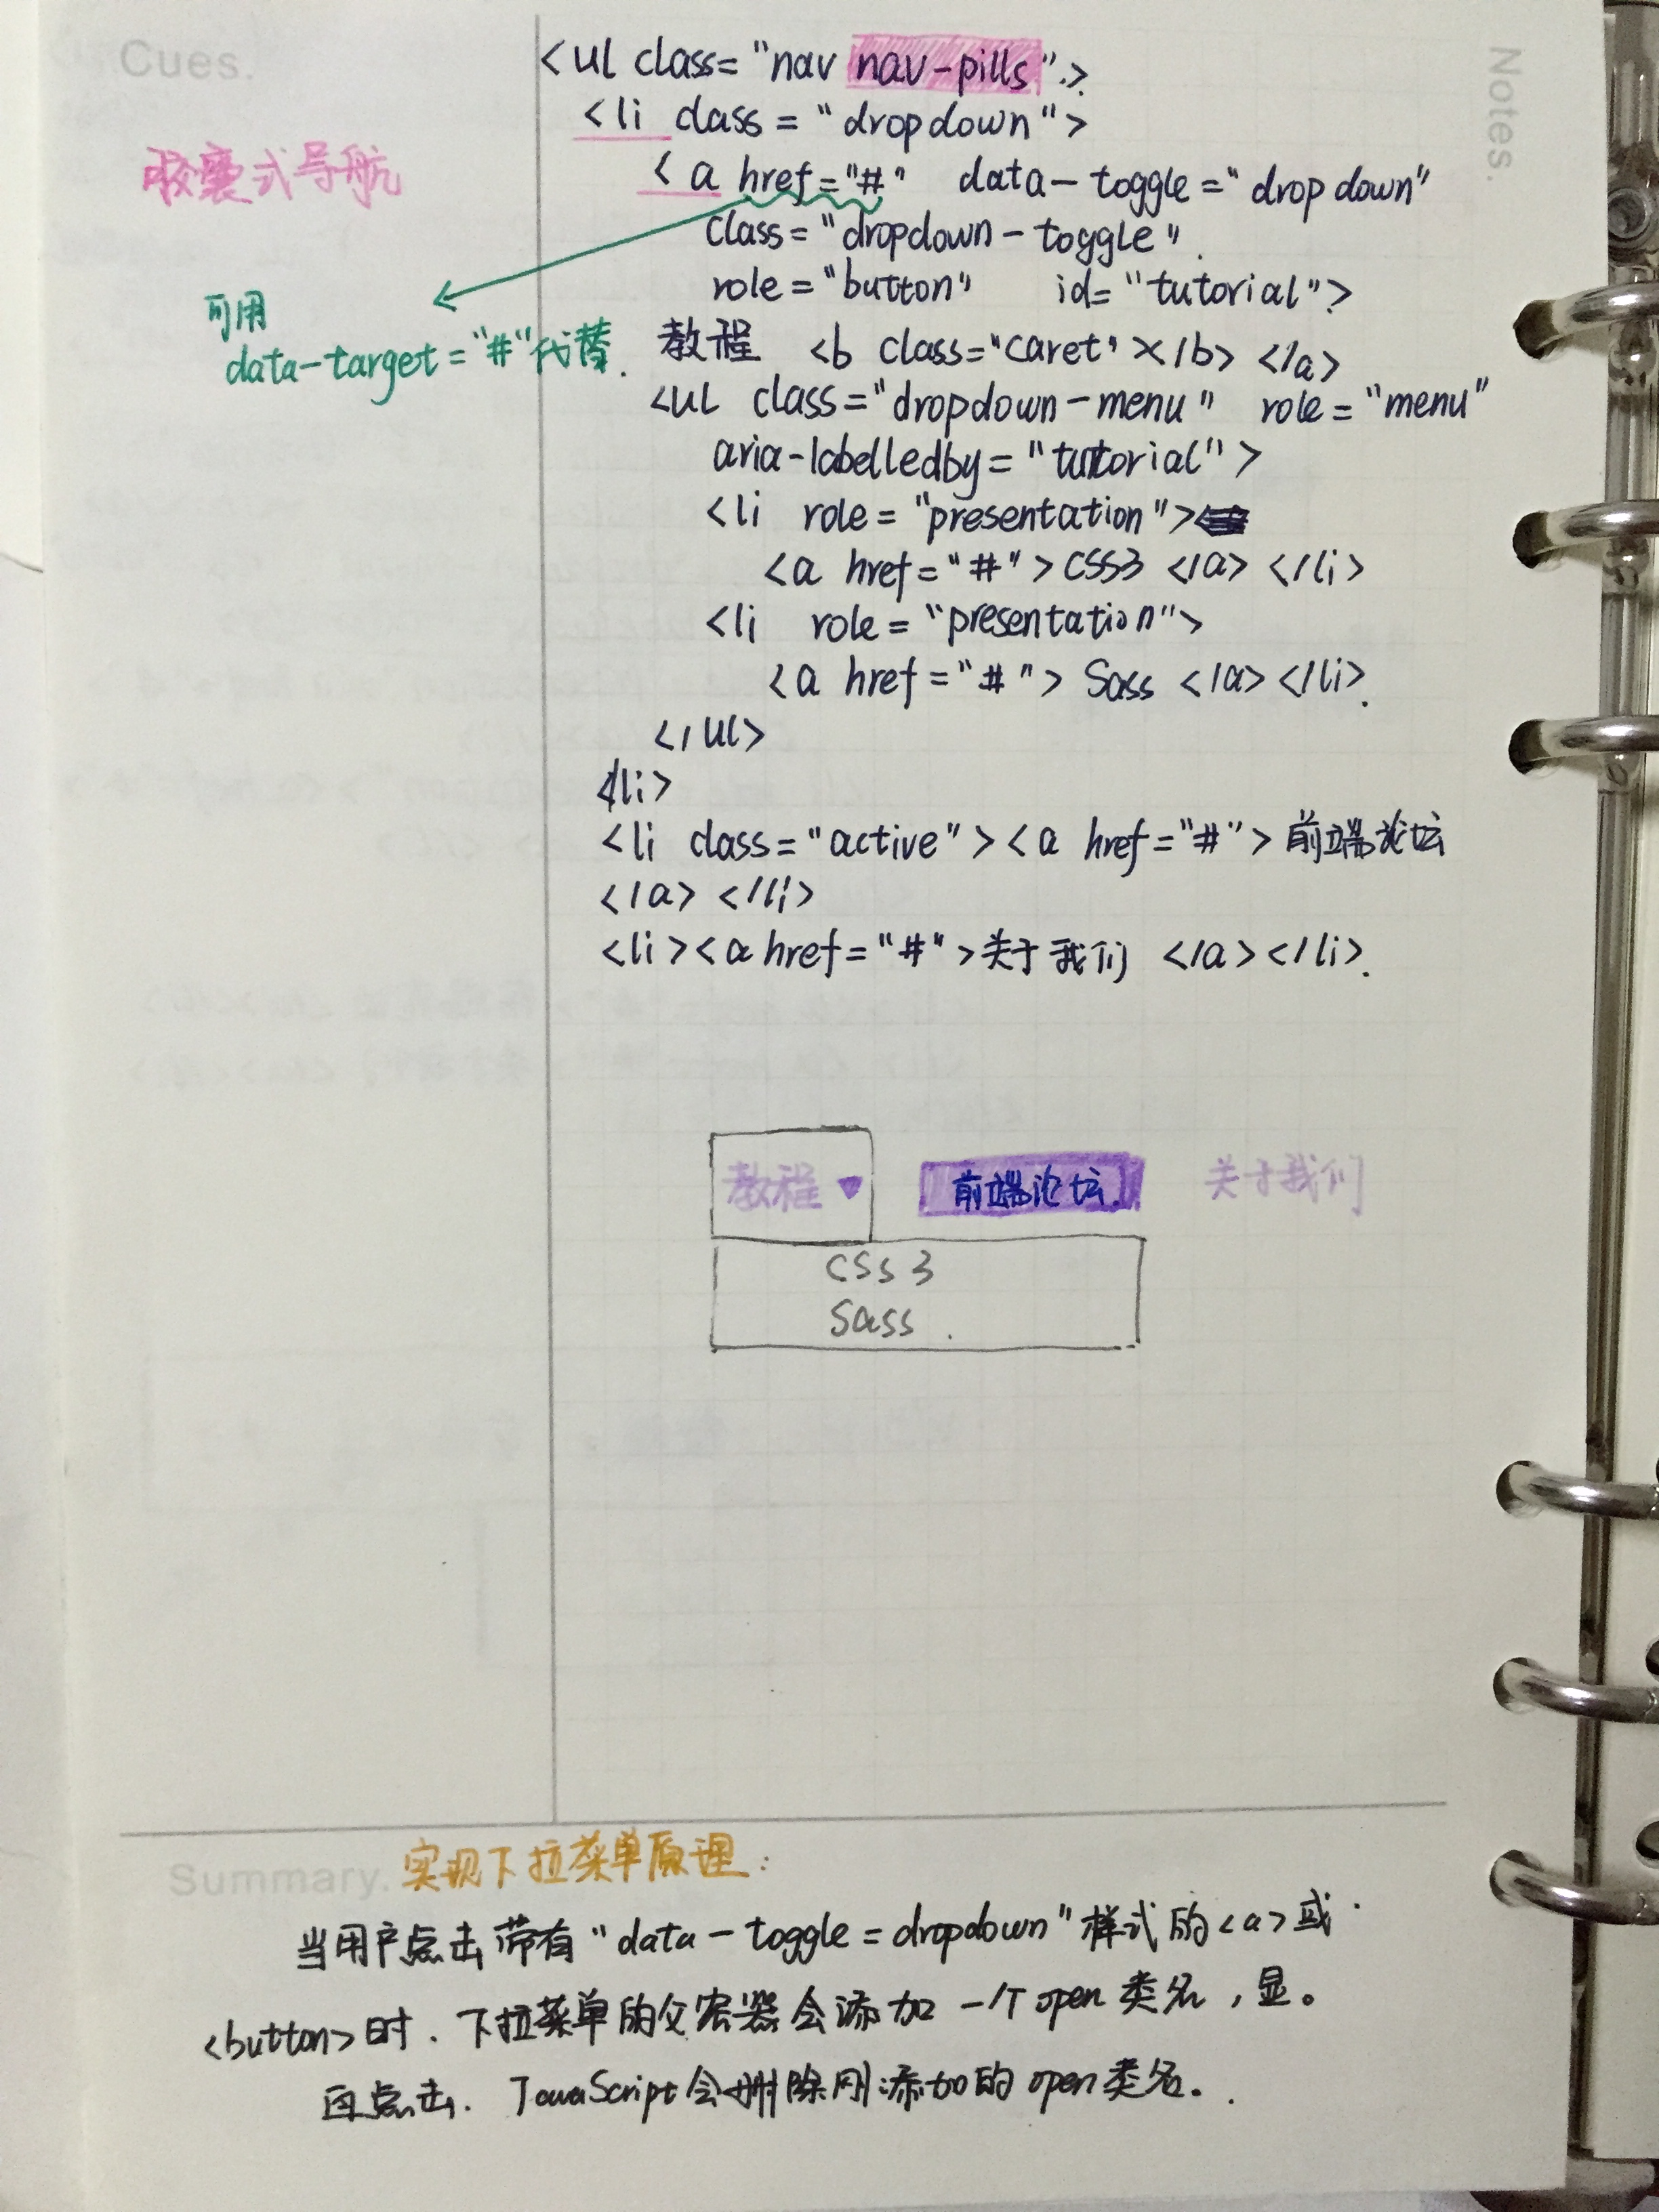 Cues.
Notes.
胶囊式导航
可用
data-target="#"代替.
<ul class="nav nav-pills">
<li class="dropdown">
<a href="#" data-toggle="dropdown"
class="dropdown-toggle"
role="button" id="tutorial">
教程 <b class="caret"></b> </a>
<ul class="dropdown-menu" role="menu"
aria-labelledby="tutorial">
<li role="presentation">
<a href="#">CSS3 </a> </li>
<li role="presentation">
<a href="#"> Sass </a></li>
</ul>
</li>
<li class="active"><a href="#">前端论坛
</a> </li>
<li><a href="#">关于我们 </a></li>
教程 ▼ 前端论坛 关于我们
CSS3
Sass
Summary. 实现下拉菜单原理:
当用户点击带有"data-toggle=dropdown"样式的<a>或
<button>时.下拉菜单的父容器会添加一个open类名,显。
再点击.JavaScript会删除刚添加的open类名。